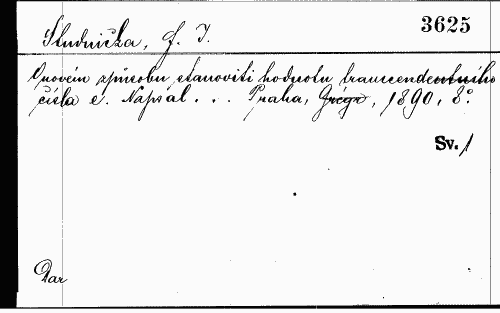 Studnička, F. J. 3625
O novém způsobu stanoviti hodnotu transcendentního
čísla e. Napsal . . . Praha, Grégr, 1890, 8°.
Sv. 1
Dar